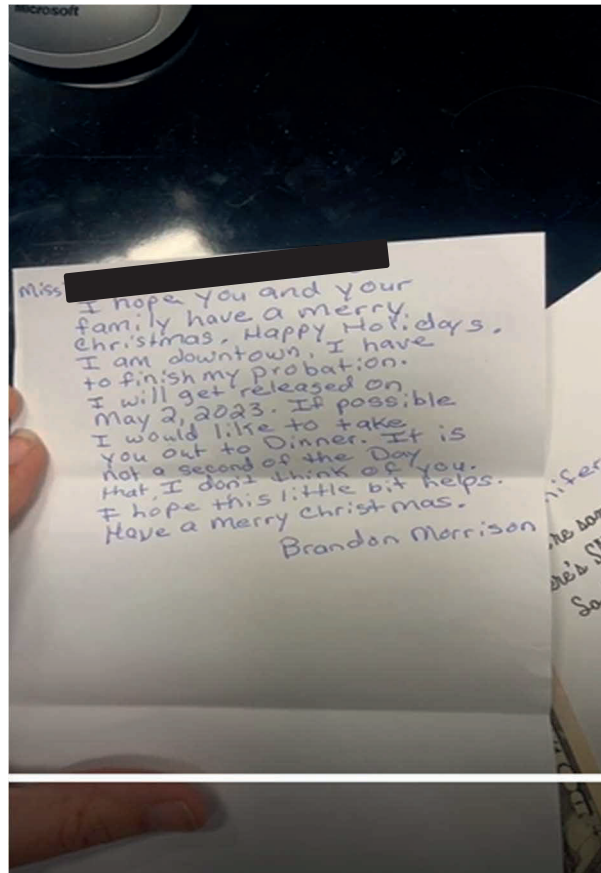 Microsoft
Miss
I hope you and your
family have a merry
Christmas. Happy Holidays.
I am downtown. I have
to finish my probation.
I will get released on
May 2, 2023. If possible
I would like to take
you out to Dinner. It is
not a second of the Day
that I don't think of you.
I hope this little bit helps.
Have a merry Christmas.
Brandon Morrison